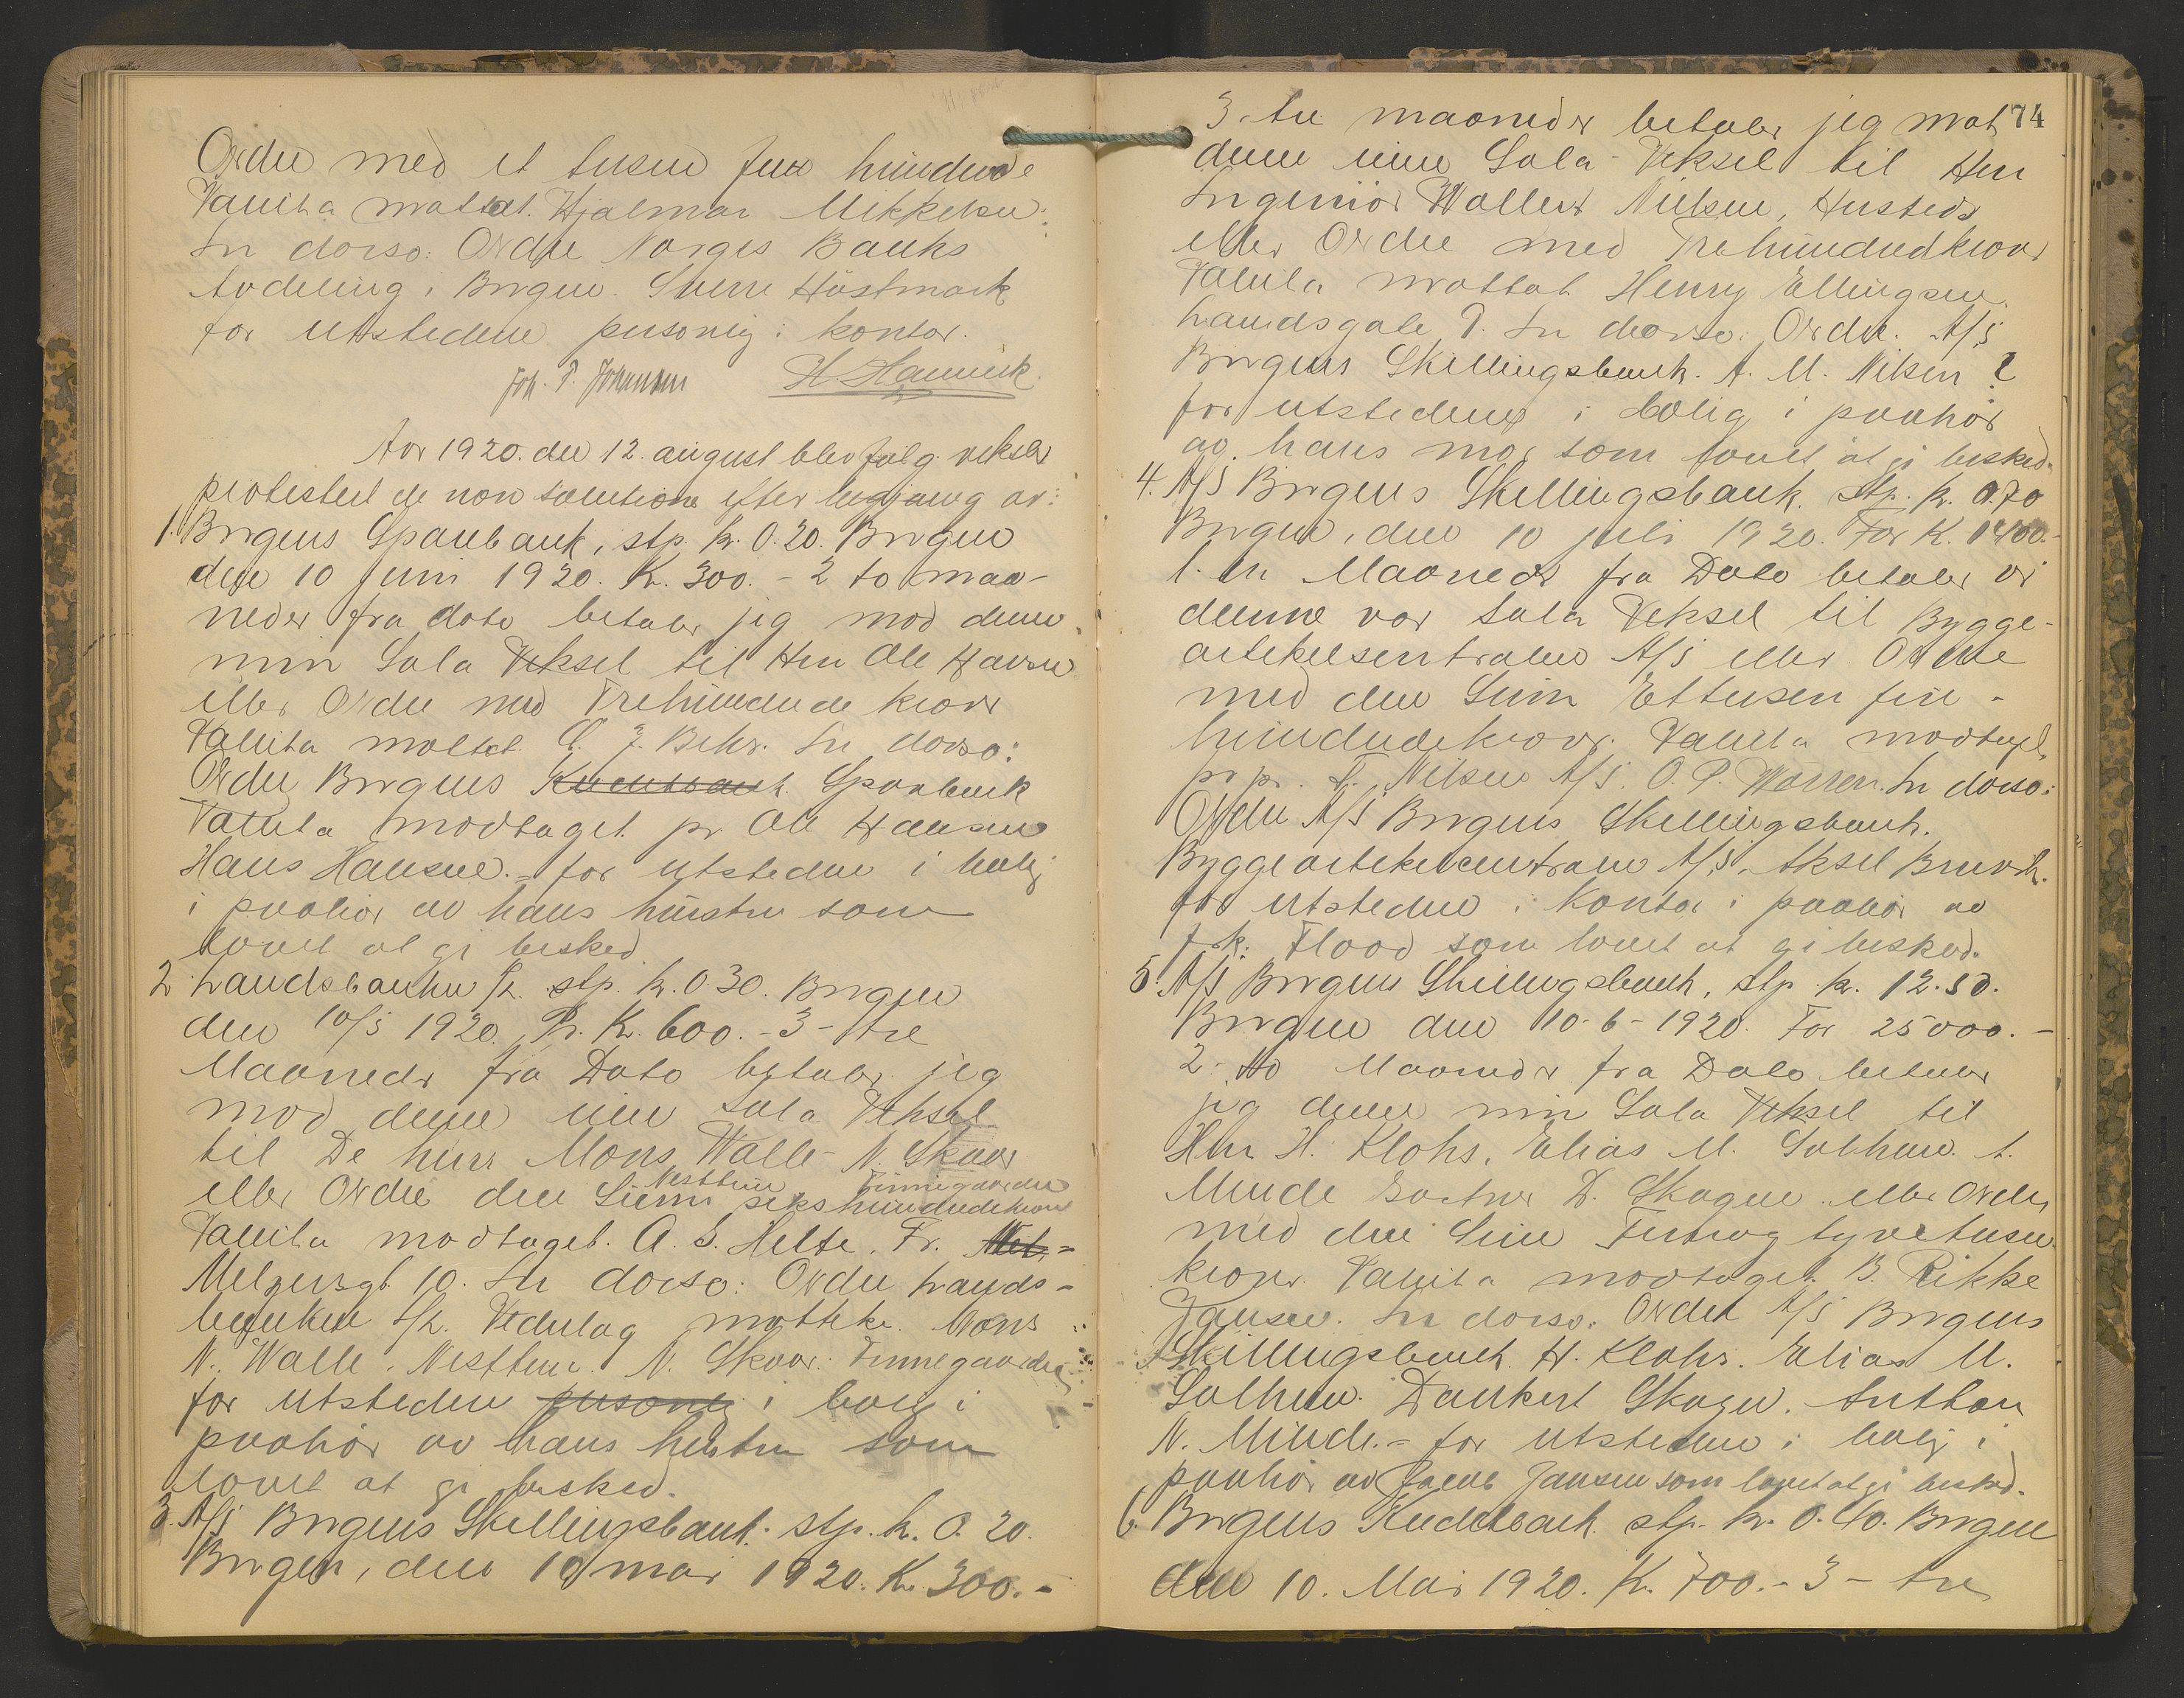 Ordre med et tusen fem hundrede
Valuta mottat. Hjalmar Mikkelsen.
In dorso: Ordre Norges Banks
Avdeling i Bergen. Sverre Höstmark
for utstederen personlig i kontor.
Joh. P. Johansen H. Hannisk.
Aar 1920. den 12. august blev følg. veksler
protestert de non solutione efter begjæring av:
1. Bergens Sparebank, stp. kr. 0.20. Bergen
den 10 Juni 1920. K. 300.- 2 to maa-
neder fra dato betaler jeg mod denne
min Sola Veksel til Herr Ole Hansen
eller Ordre med Trehundrede kroner
Valuta mottat. J. Behr. In dorso:
Ordre Bergens Kreditbank. Sparebank
Valuta modtaget pr Ole Hansen
Hans Hansen.- for utstederen i bolig
i paahør av hans hustru som
lovet at gi besked.
2 Landsbanken A/L. stp. k. 0.30. Bergen
den 10/5 1920. Pr. K. 600.- 3- tre
Maaneder fra Dato betaler jeg
mod denne min Sola Veksel
til De herrer Mons Walle - N. Skaar
Nesttun Finnegaarden
eller Ordre den Summa sekshundredekroner
Valuta modtaget. A. S. Helte. Fr. Mel-
Melzersgt 10. In dorso: Ordre Lands-
banken A/L. Vederlag mottat. Mons
N. Walle. Nesttun. N. Skaar. Finnegaarden
for utstederen personlig i bolig i
paahør av hans hustru som
lovet at gi besked.
3. A/S Bergens Skillingsbank. stp. k. 0. 20.
Bergen, den 10 mai 1920. K. 300.-
74
3- tre maaneder betaler jeg mot
denne min Sola-Veksel til Herr
Ingeniør Wallert Nielsen, Husteds
eller Ordre med Trehundredkroner
Valuta mottat Henry Ellingsen.
Landsgate 9. In dorso: Ordre. A/S
Bergens Skillingsbank. A. M. Nilsen ?
for utstederen i bolig i paahør
av hans mor som lovet at gi besked.
4. A/S Bergens Skillingsbank. Stp. k. 0.70
Bergen, den 10 juli 1920. For K. 1400.-
1. en Maaned fra Dato betaler vi
denne vor Sola Veksel til Bygge-
artikelsentralen A/S eller Ordre
med den Sum Ettusen fire-
hundredekroner. Valuta modtaget
pr pr. F. Nilsen A/S. O. P. Warren. In dorso:
Ordre A/S Bergens Skillingsbank.
Byggeartikelcentralen A/S. Aksel Bruvik.
for utstederen i Kontor i paahør av
frk. Flood som lovet at gi besked.
5. A/S Bergens Skillingsbank, stp. k. 12.50.
Bergen den 10-6-1920. For 25000.-
2- to Maaneder fra Dato betaler
jeg denne min Sola Veksel til
Herr H. Klohs, Elias M. Solheim. A.
Minde Gartner D. Skagen eller Ordre
med den Sum Femogtyvetusen
kroner. Valuta modtaget. B. Rikke
Jansen. In dorso. Ordre A/S Bergens
Skillingsbank. H. Klohs. Elias M.
Solheim. Dankert Skagen. Anthon
N. Minde.- for utstederen i bolig i
paahør av Jacob Jansen som lovet at gi besked.
6. Bergens Kreditbank stp. kr. 0.40. Bergen
den 10. Mai 1920. K. 700.- 3- tre